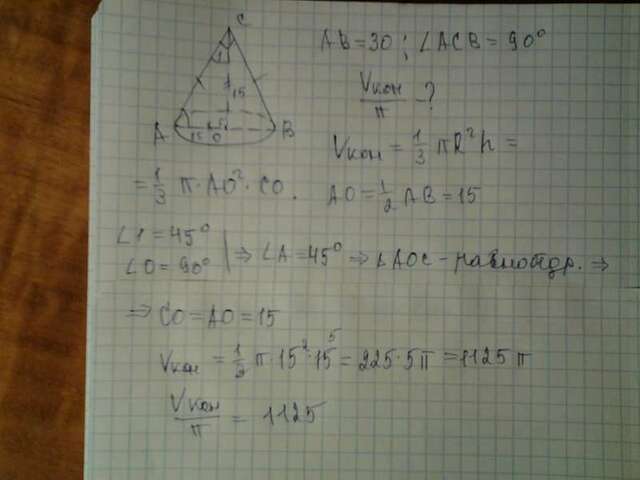 C
1
15
A 15 O B
AB = 30; ∠ACB = 90°
Vкон/π - ?
Vкон = 1/3 πR²h =
= 1/3 π·AO²·CO. AO = 1/2 AB = 15
∠1 = 45°
∠O = 90° | ⇒ ∠A = 45° ⇒ ΔAOC - равнобедр. ⇒
⇒ CO = AO = 15
Vкон = 1/3 π·15²·15 5 = 225·5π = 1125π
Vкон/π = 1125